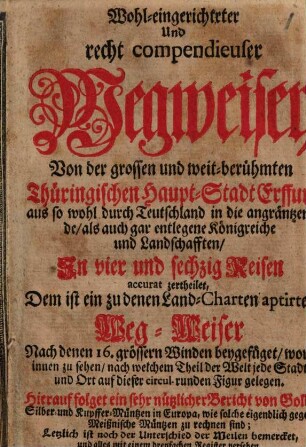 Wohl-eingerichteter
Und
recht compendieuser
Wegweiser
Von der grossen und weit-berühmten
Thüringischen Haupt-Stadt Erffur
aus so wohl durch Teutschland in die angräntzen
de/ als auch gar entlegene Königreiche
und Landschafften/
In vier und sechzig Reisen
accurat zertheilet,
Dem ist ein zu denen Land-Charten aptirte
Weg-Weiser
Nach denen 16. grössern Winden beygefüget/ wor
innen zu sehen/ nach welchem Theil der Welt jede Stadt
und Ort auf dieser circul-runden Figur gelegen.
Hierauf folget ein sehr nützlicher Bericht von Gol
Silber und Kupffer-Müntzen in Europa, wie solche eigendlich gege
Meißnische Müntzen zu rechnen sind;
Letzlich ist noch der Unterschied der Meilen bemercket,
und alles mit einem brauchbaren Register versehen